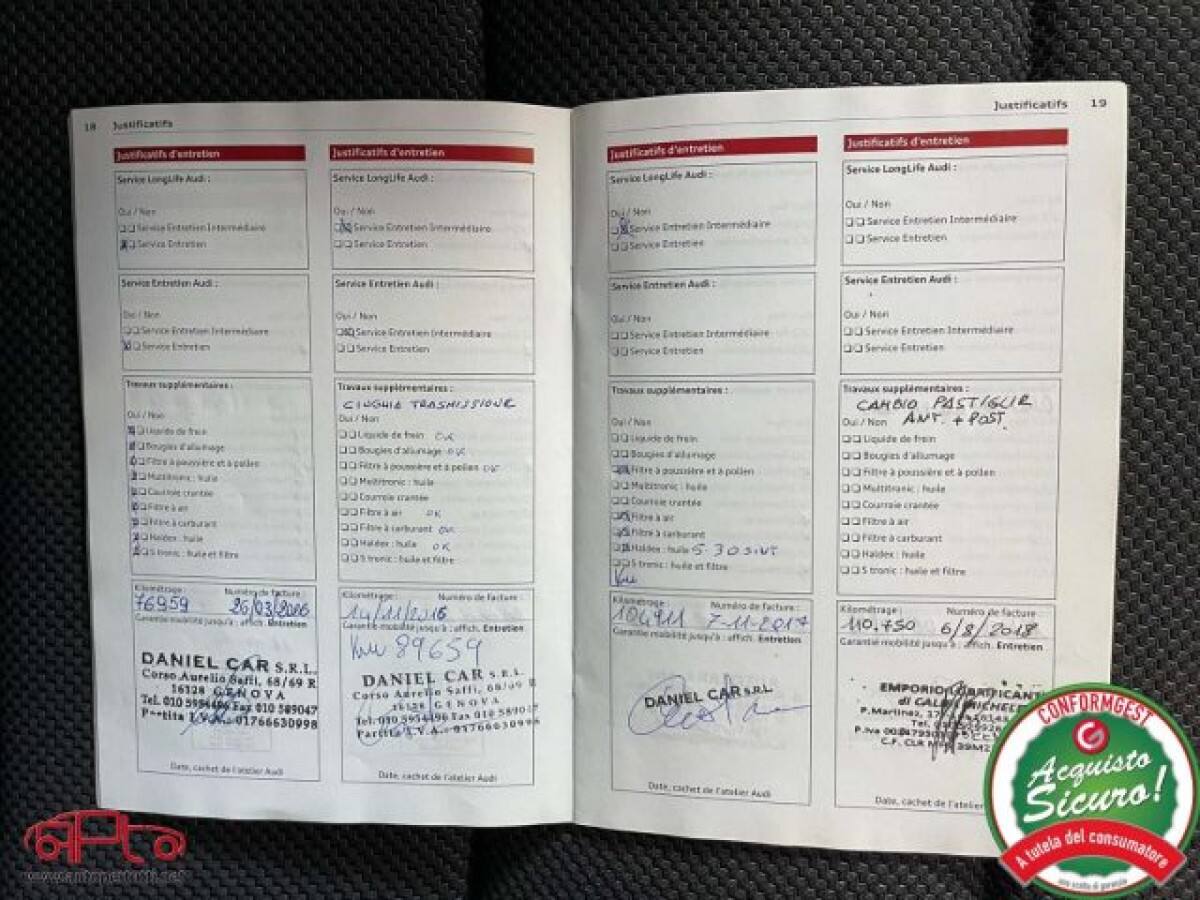 18 Justificatifs
Justificatifs d'entretien
Service LongLife Audi :
Oui / Non
Service Entretien Intermédiaire
Service Entretien
Service Entretien Audi :
Oui / Non
Service Entretien Intermédiaire
Service Entretien
Travaux supplémentaires :
Oui / Non
Liquide de frein
Bougies d'allumage
Filtre à poussière et à pollen
Multitronic : huile
Courroie crantée
Filtre à air
Filtre à carburant
Haldex : huile
S tronic : huile et filtre
Kilométrage : Numéro de facture :
76959 26/03/2016
Garantie mobilité jusqu'à : affich. Entretien
DANIEL CAR S.R.L.
Corso Aurelio Saffi, 68/69 R
16128 GENOVA
Tel. 010 5954496 Fax 010 589047
Partita I.V.A. 01766630998
Date, cachet de l'atelier Audi
Justificatifs d'entretien
Service LongLife Audi :
Oui / Non
Service Entretien Intermédiaire
Service Entretien
Service Entretien Audi :
Oui / Non
Service Entretien Intermédiaire
Service Entretien
Travaux supplémentaires :
CINGHIA TRASMISSIONE
Oui / Non
Liquide de frein OK
Bougies d'allumage OK
Filtre à poussière et à pollen OK
Multitronic : huile
Courroie crantée
Filtre à air OK
Filtre à carburant OK
Haldex : huile OK
S tronic : huile et filtre
Kilométrage : Numéro de facture :
14/11/2016
Garantie mobilité jusqu'à : affich. Entretien
Km 89659
DANIEL CAR S.R.L.
Corso Aurelio Saffi, 68/69 R
16128 GENOVA
Tel. 010 5954496 Fax 010 589047
Partita I.V.A. 01766630998
Date, cachet de l'atelier Audi
Justificatifs 19
Justificatifs d'entretien
Service LongLife Audi :
Oui / Non
Service Entretien Intermédiaire
Service Entretien
Service Entretien Audi :
Oui / Non
Service Entretien Intermédiaire
Service Entretien
Travaux supplémentaires :
Oui / Non
Liquide de frein
Bougies d'allumage
Filtre à poussière et à pollen
Multitronic : huile
Courroie crantée
Filtre à air
Filtre à carburant
Haldex : huile 5-30 SINT
S tronic : huile et filtre
Km
Kilométrage : Numéro de facture :
104911 7-11-2017
Garantie mobilité jusqu'à : affich. Entretien
DANIEL CAR S.R.L
Date, cachet de l'atelier Audi
Justificatifs d'entretien
Service LongLife Audi :
Oui / Non
Service Entretien Intermédiaire
Service Entretien
Service Entretien Audi :
Oui / Non
Service Entretien Intermédiaire
Service Entretien
Travaux supplémentaires :
CAMBIO PASTIGLIE
Oui / Non ANT. + POST.
Liquide de frein
Bougies d'allumage
Filtre à poussière et à pollen
Multitronic : huile
Courroie crantée
Filtre à air
Filtre à carburant
Haldex : huile
S tronic : huile et filtre
Kilométrage : Numéro de facture :
110.750 6/8/2018
Garantie mobilité jusqu'à : affich. Entretien
EMPORIO LUBRIFICANTI
P.Martinez,
Tel.
P.Iva
C.F. CLR
Date, cachet de l'atelier
CONFORMGEST
Acquisto
Sicuro!
A tutela del consumatore
www.autopertutti.net